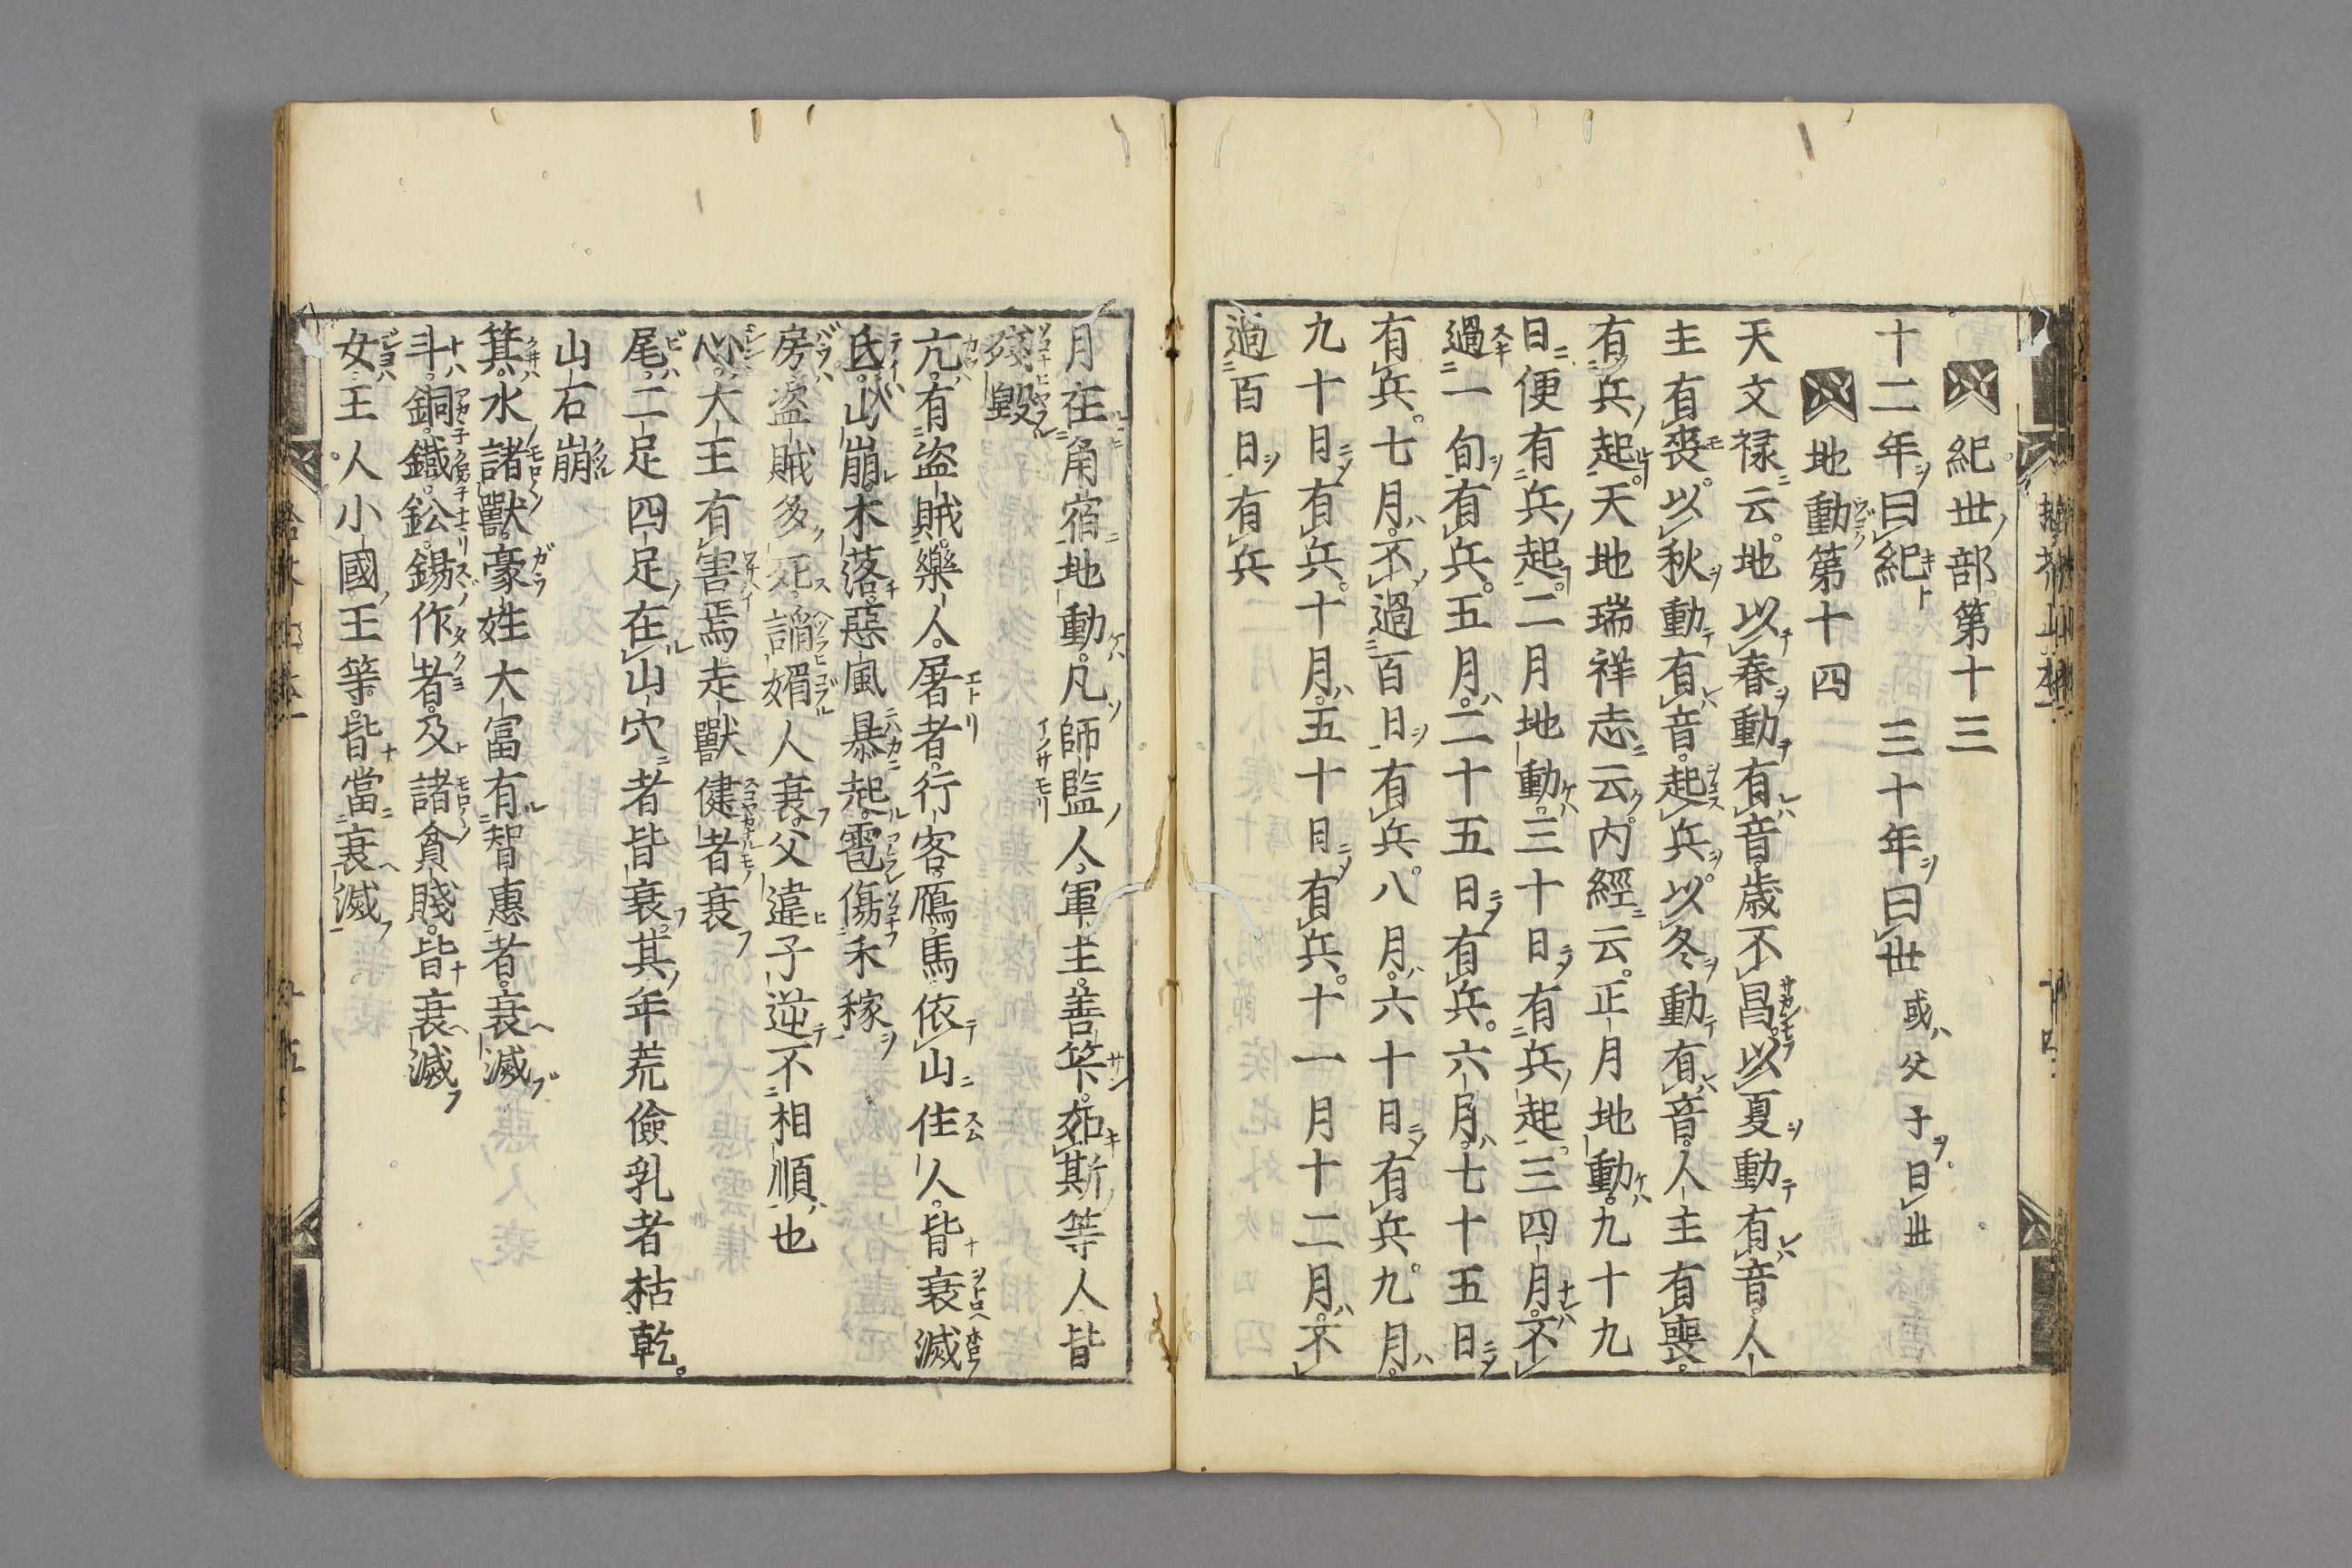 紀世部第十三
十二年曰紀 三十年曰世 或父子曰世
地動第十四
天文祿云地以春動有音歲不昌以夏動有音人
主有喪以秋動有音起兵以冬動有音人主有喪
有兵起天地瑞祥志云内經云正月地動九十九
日便有兵起二月地動三十日有兵起三四月不
過一旬有兵五月二十五日有兵六月七十五日
有兵七月不過百日有兵八月六十日有兵九月
九十日有兵十月五十日有兵十一月十二月不
過百日有兵
月在角宿地動凡師監人軍主善筭妬斯等人皆
殘毀
亢有盜賊樂人屠者行客鴈馬依山住人皆衰滅
氐山崩木落惡風暴起雹傷禾稼
房盜賊多死諂媚人衰父違子逆不相順也
心大王有害焉走獸健者衰
尾二足四足在山穴者皆衰其年荒儉乳者枯乾
山石崩
箕水諸獸豪姓大富有智惠者衰滅
斗銅鐵鈆錫作者及諸貪賤皆衰滅
女王人小國王等皆當衰滅